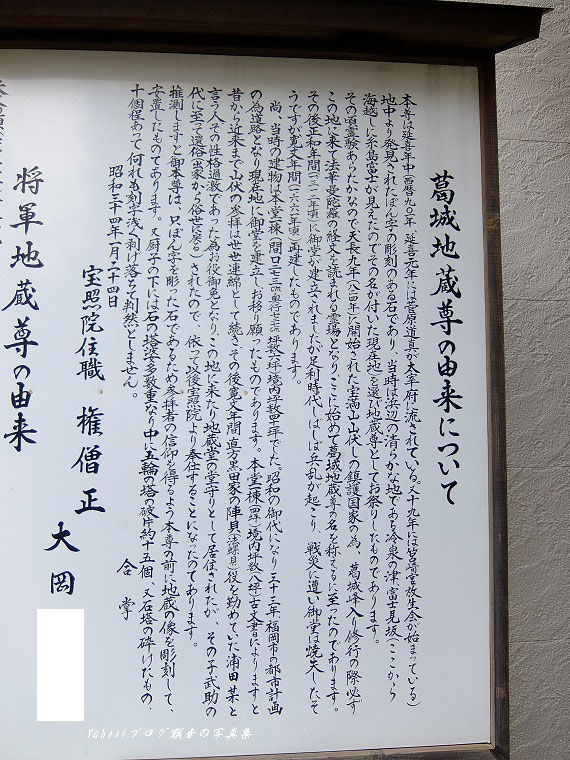 葛城地蔵尊の由来について
本尊は延喜年中(西暦九〇一年 延喜元年には菅原道真が太宰府に流されている。又十九年には筥崎宮放生会が始まっている)
地中より発見されたぼん字の彫刻のある石であり、当時は浜辺の清らかな地である冷泉の津、富士見坂(ここから
海越しに糸島富士が見えたのでその名が付いた現在地)を選び地蔵尊としてお祭りしたものであります。
その頃霊験あらたかなので天長九年(八二四年)に開始された宝満山山伏しの鎮護国家の為、葛城峰入り修行の際必ず
この地に来て法華曼陀羅の経文を読まれる霊場となり、ここに始めて葛城地蔵尊の名を称えるに至ったのであります。
その後正和年間(一三一二年頃)に御堂が建立されましたが足利時代しばしば兵乱が起こり、戦災に遭い御堂は焼失したそ
うですが寛文年間(一六六一年頃)再建したものであります。
尚、当時の建物は本堂一棟、坪数六坪、境内坪数四十坪でした。昭和の御代になり三十三年福岡市の都市計画
の為道路となり現在地に御堂を建立しお移り願ったものであります。本堂一棟(四坪)境内坪数八坪、古文書によりますと
昔から近来まで山伏の参拝は世世連綿として続きその後寛文年間、直方黒田家の陣貝(法螺貝)役を勤めていた浦田某と
言う人その性格過激であった為お役御免となり、この地に来たり地蔵堂の堂守りとして居住されたが、その子武助の
代に至って還俗(出家から俗世に戻る)されたので、依って以後宝照院より奉仕することになったのであります。
推測しますと御本尊は、只ぼん字を彫った石であるため参拝者の信仰を得るよう本尊の前に地蔵の像を彫刻して、
安置したものであります。又厨子の下には石の塔婆多数重なり中に五輪の塔の破片約十五個、又石塔の砕けたもの、
十個程あって何れも刻字浅く剥げ落ちて判然としません。
合掌
昭和三十四年一月二十四日
宝照院住職 権僧正 大岡
将軍地蔵尊の由来
Yahoo!ブログ 頑者の写真集